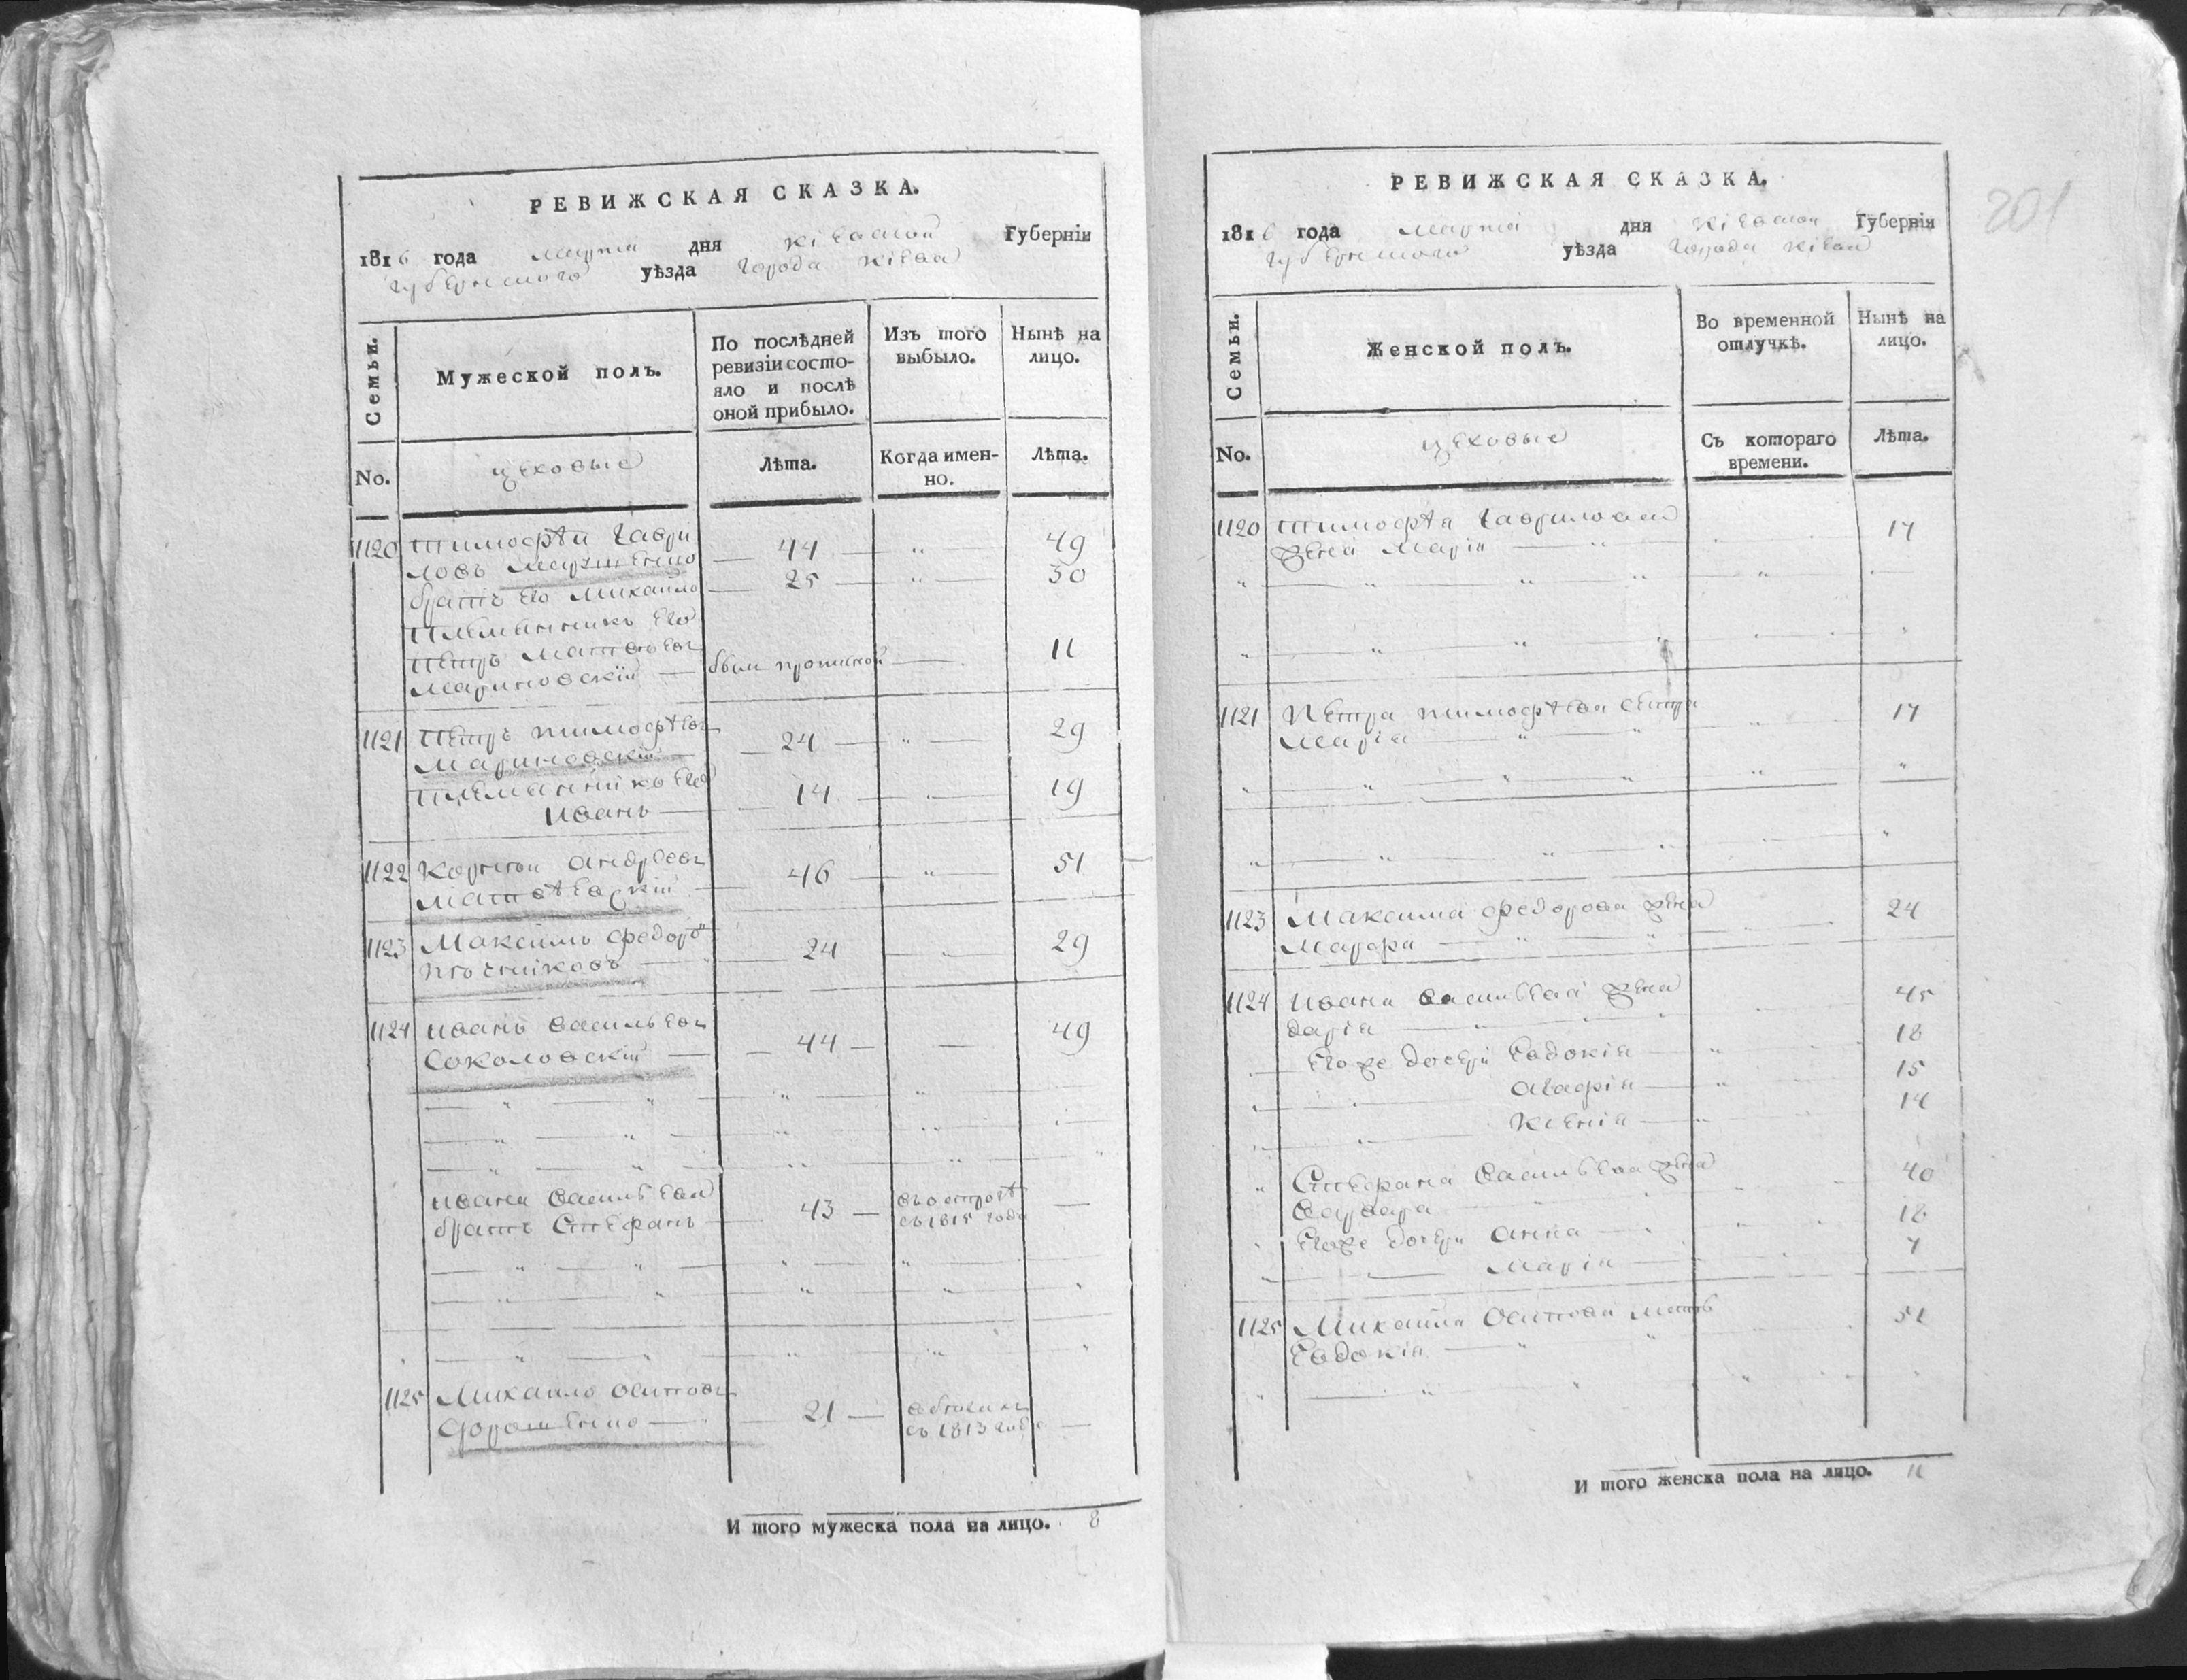 РЕВИЖСКАЯ СКАЗКА.
1816 года марта дня Кіевской Губерніи
губернского уѣзда города Кіева
Семьи.
Мужеской полъ.
По послѣдней
ревизіи состо-
яло и послѣ
оной прибыло.
Изъ того
выбыло.
Нынѣ на
лицо.
No.
цеховые
Лѣта.
Когда имен-
но.
Лѣта.
1120 Тимофѣй Гаври
ловъ — 44 — 49
братъ его Михайло — 25 — 30
Племянникъ его
Петръ Матвѣевъ
Мариновскій — 11
1121 Петръ Тимофѣевъ
Мариновскій — 24 — 29
Племянникъ его
Иванъ — 14 — 19
1122 Корній Андреевъ
Матвѣевскій — 46 — 51
1123 Максимъ Федоро
— 24 — 29
1124 Иванъ Васильевъ
Соколовскій — 44 — 49
Ивана Васильева
братъ Стефанъ — 43 — въ острогѣ
съ 1815 года —
1125 Михайло Осиповъ
Дорошенко — 21 —
съ 1813 года —
И того мужеска пола на лицо. 8
РЕВИЖСКАЯ СКАЗКА.
201
1816 года марта дня Кіевской Губерніи
губернского уѣзда города Кіева
Семьи.
Женской полъ.
Во временной
отлучкѣ.
Нынѣ на
лицо.
No.
цеховые
Съ котораго
времени.
Лѣта.
1120 Тимофѣя Гаврилова
жена Марія — 17
1121 Петра Тимофѣева сестра
Марія — 17
1123 Максима Федорова жена
Марфа — 24
1124 Ивана Васильева жена
Дарія — 45
Егоже дочери Евдокія — 18
Агафія — 15
Ксенія — 14
Стефана Васильева жена
Варвара — 40
Егоже дочери Анна — 18
Марія — 7
1125 Михайла Осипова мать
Евдокія — 51
И того женска пола на лицо. 11